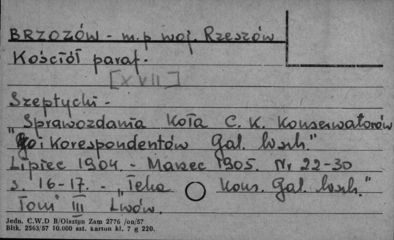 BRZOZÓW - m.p woj. Rzeszów
Kościół paraf.
[XVII]
Szeptycki -
"Sprawozdania Koła C. K. Konserwatorów
i Korespondentów Gal. Wsch."
Lipiec 1904. - Marzec 1905. Nr 22-30
s. 16-17. - "Teka Kons. Gal. Wsch."
Tom III Lwów.
Jedn. C.W.D B/Olsztyn Zam 2776 /oa/57
Bltk. 2563/57 10.000 szt. karton kl. 7 g 220.